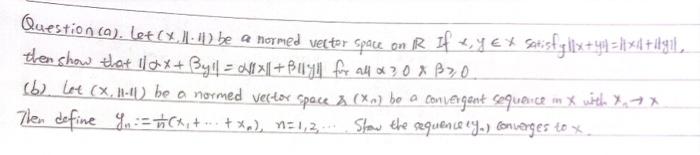 Question (a). Let (X, ||·||) be a normed vector space on ℝ If x, y ∈ X satisfy ||x+y|| = ||x|| + ||y||,
then show that ||αx + βy|| = α||x|| + β||y|| for all α ≥ 0 & β ≥ 0.
(b) Let (X, ||·||) be a normed vector space & (xₙ) be a convergent sequence in X with xₙ → x
Then define yₙ := 1/n (x₁ + ··· + xₙ), n = 1, 2, ... Show the sequence (yₙ) converges to x.